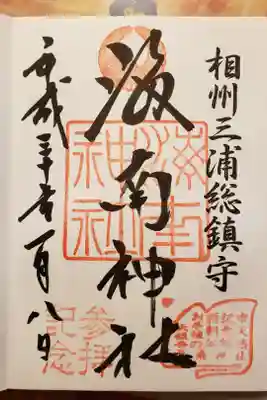 相州三浦総鎮守
海南神社
平成三十年一月八日
海南
神社
参拝
記念